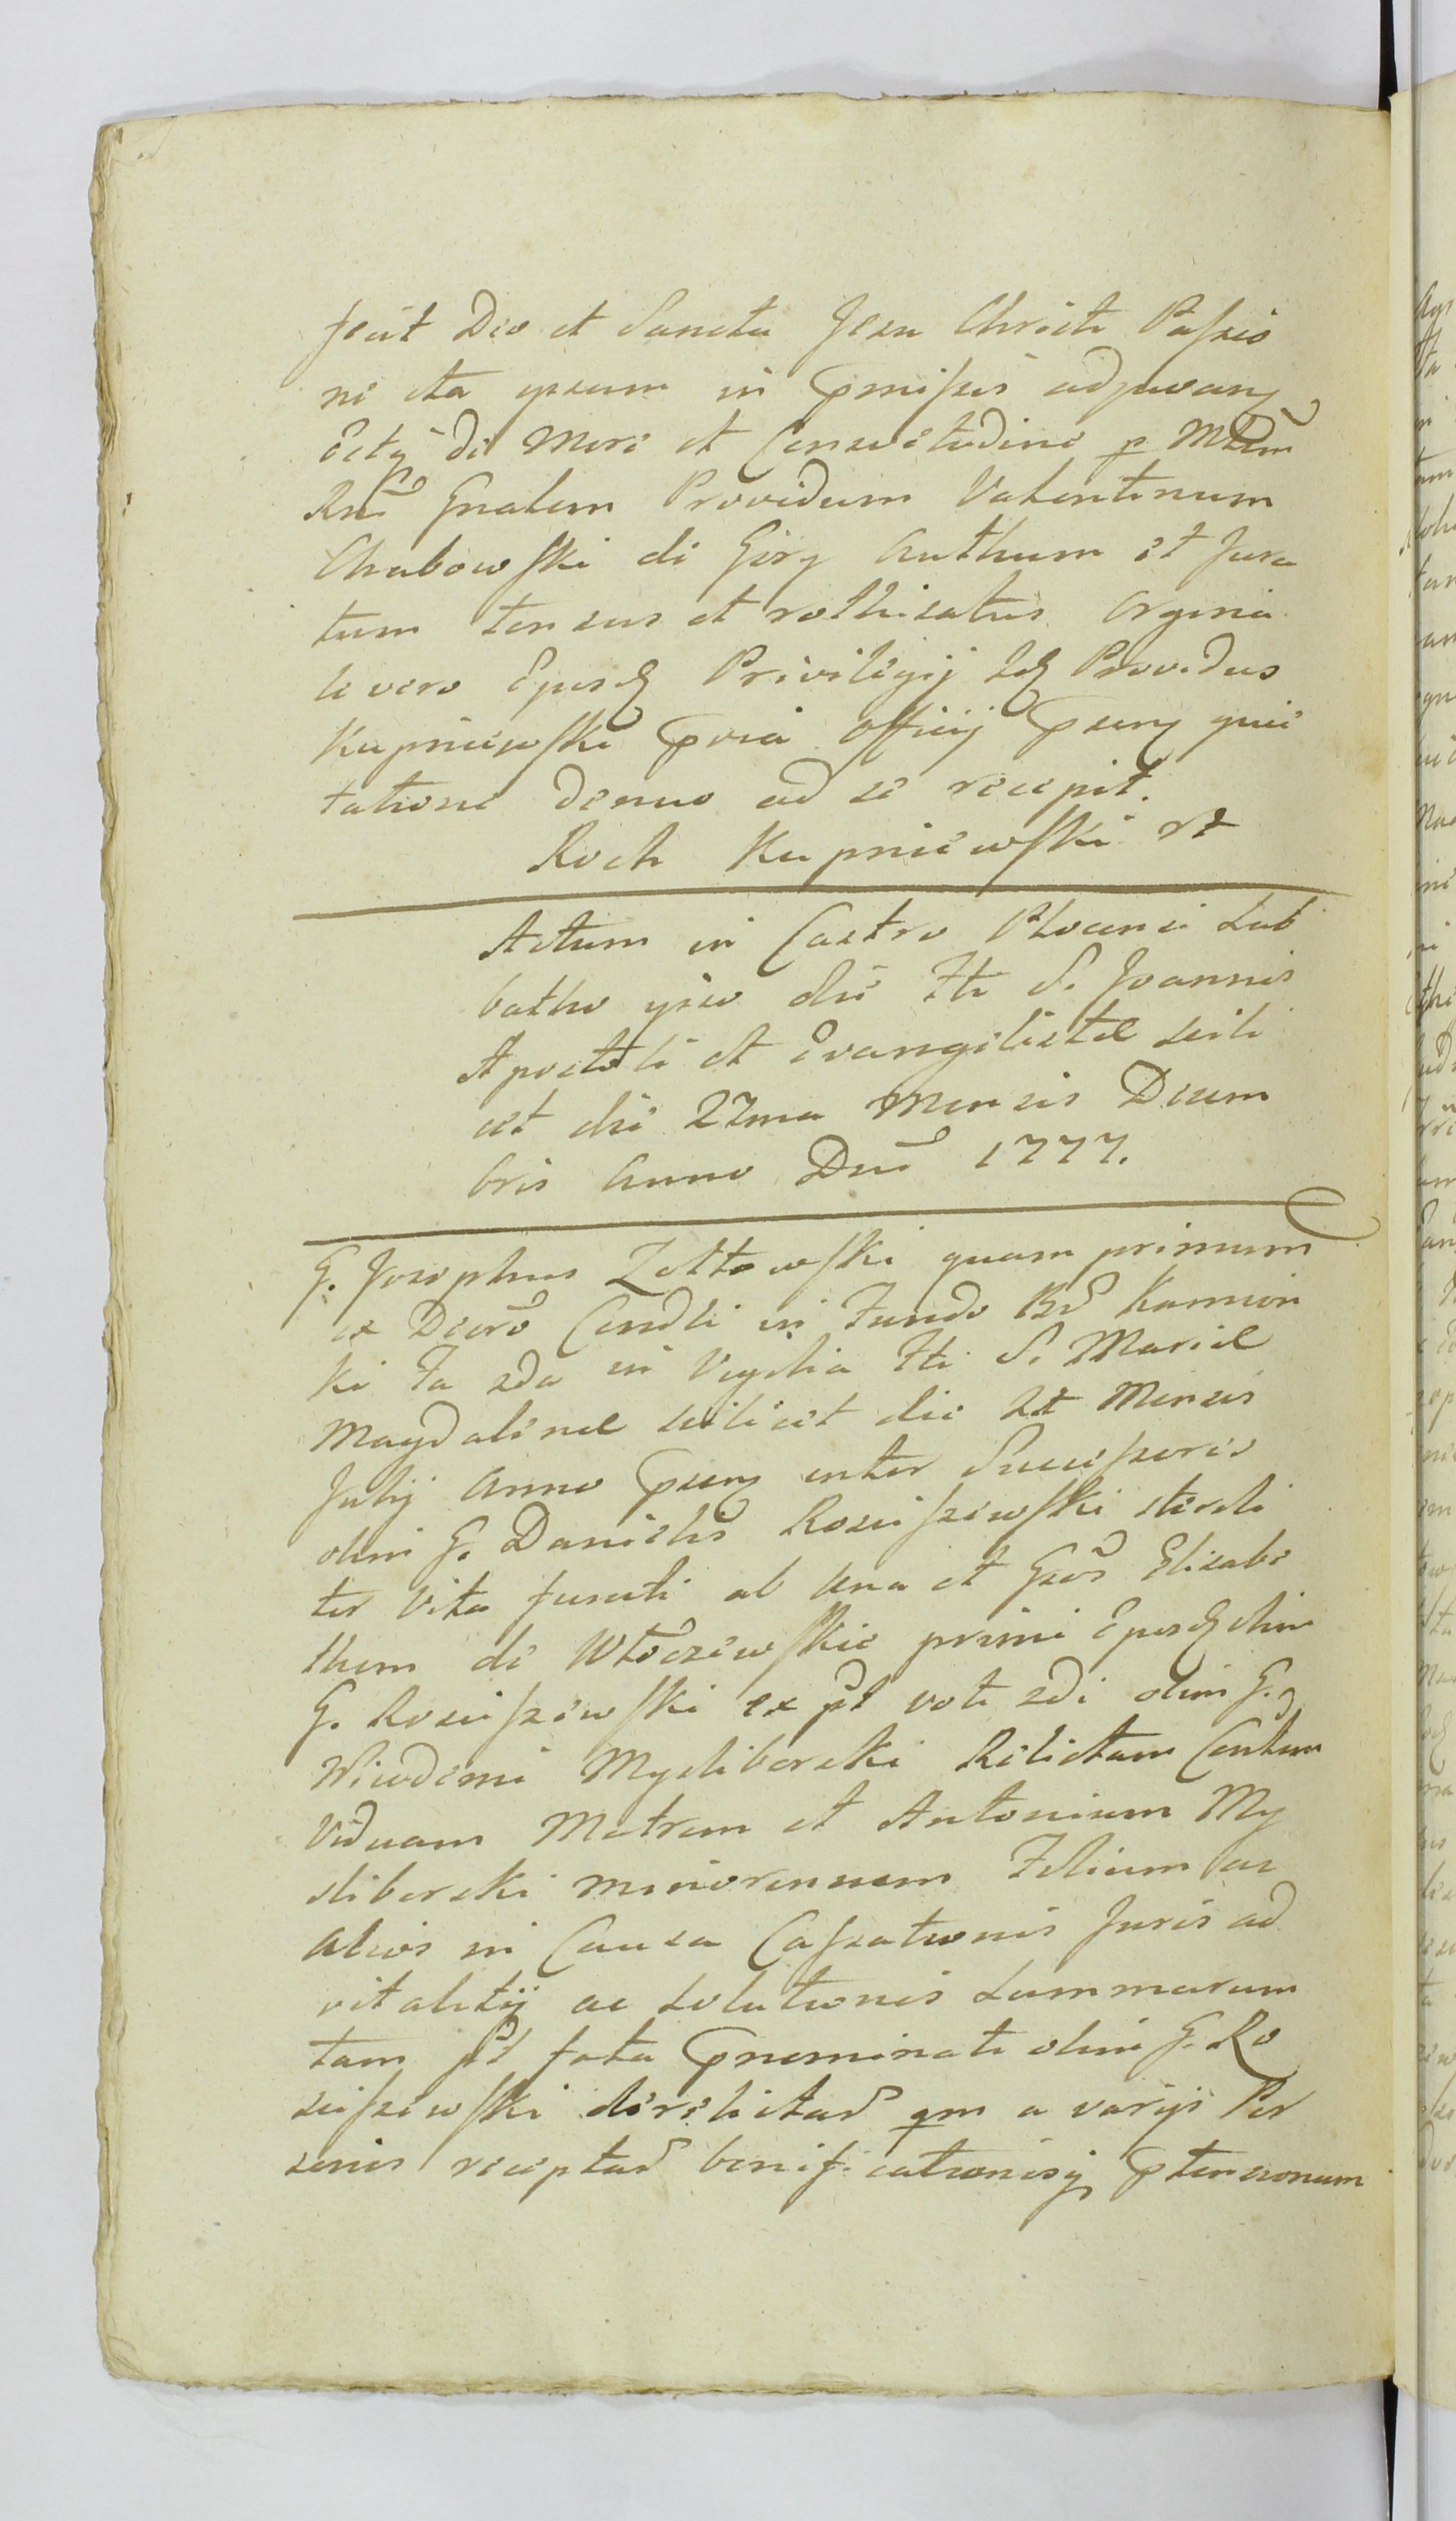 fecit Deo et Sancta Jesu Christi Passio
ni ita ipsum in pmissis adjuvanz
Actz de More et Consvetudine p Mtem
Rnd Gnalem Providum Valentinum
Chabowski de Giry Authum et Jura
tum tensus et rothisatus Orgina
le vero Ejusdz Privilegij Idz Providus
Kupniewski pvia Officij psenz quie
tatione denuo ad se recepit.
Roch Kupniewski
Actum in Castro Plocensi Sab
batho ipso die Fti S. Joannis
Apostoli et Evangelistæ scili
cet die 27ma Mensis Decem
bris Anno Dni 1777.
G. Josephus Zółtowski quam primum
ex Decro Condli in Fundo Bd Kamion
ki Fa sda in Vigilia Fti S. Mariæ
Magdalenæ scilicet die 21 Mensis
Julij Anno psenz inter Successores
olim G. Danielis Rosciszewski sterili
ter Vita functi ab una et Gsos Elisabe
them de Włoczewskie primi Ejusdz olim
G. Rosciszewski ex pt voti sdi olim G.
Myśliborski Relictam Contem
Viduam Matrem et Antonium My
śliborski minorennem Filium ac
alios in Causa Cassationis Juris ad
vitalitij ac solutionis summarum
tam pt fata pnominati olim G. Ro
sciszewski derelictad qm a varijs Per
sonis receptad bonificationisq ptensionum